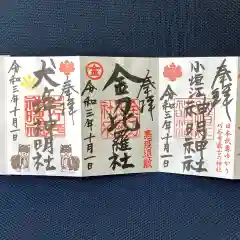 奉拝
小垣江神明神社
令和三年十月一日
日本武尊ゆかり
奉拝
金刀比羅社
㊎
令和三年十月一日
奉拝
神明社
令和三年十月一日